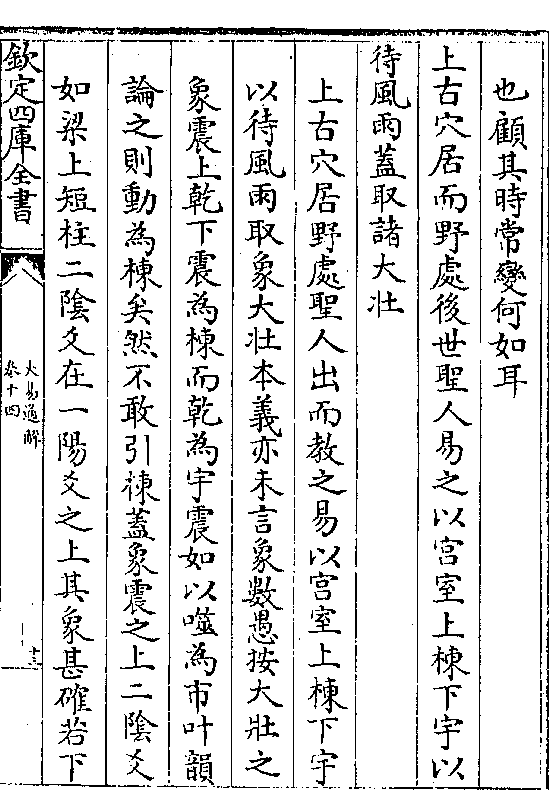 也顧其時常變何如耳
上古穴居而野處後世聖人易之以宫室上棟下宇以
待風雨蓋取諸大壯
上古穴居野處聖人出而教之易以宫室上棟下宇
以待風雨取象大壯本義亦未言象數愚按大壯之
象震上乾下震為棟而乾為宇震如以噬為市叶韻
論之則動為棟矣然不敢引棟蓋象震之上二陰爻
如梁上短柱二陰爻在一陽爻之上其象甚確若下
欽定四庫全書
大易通解
卷十四
十三